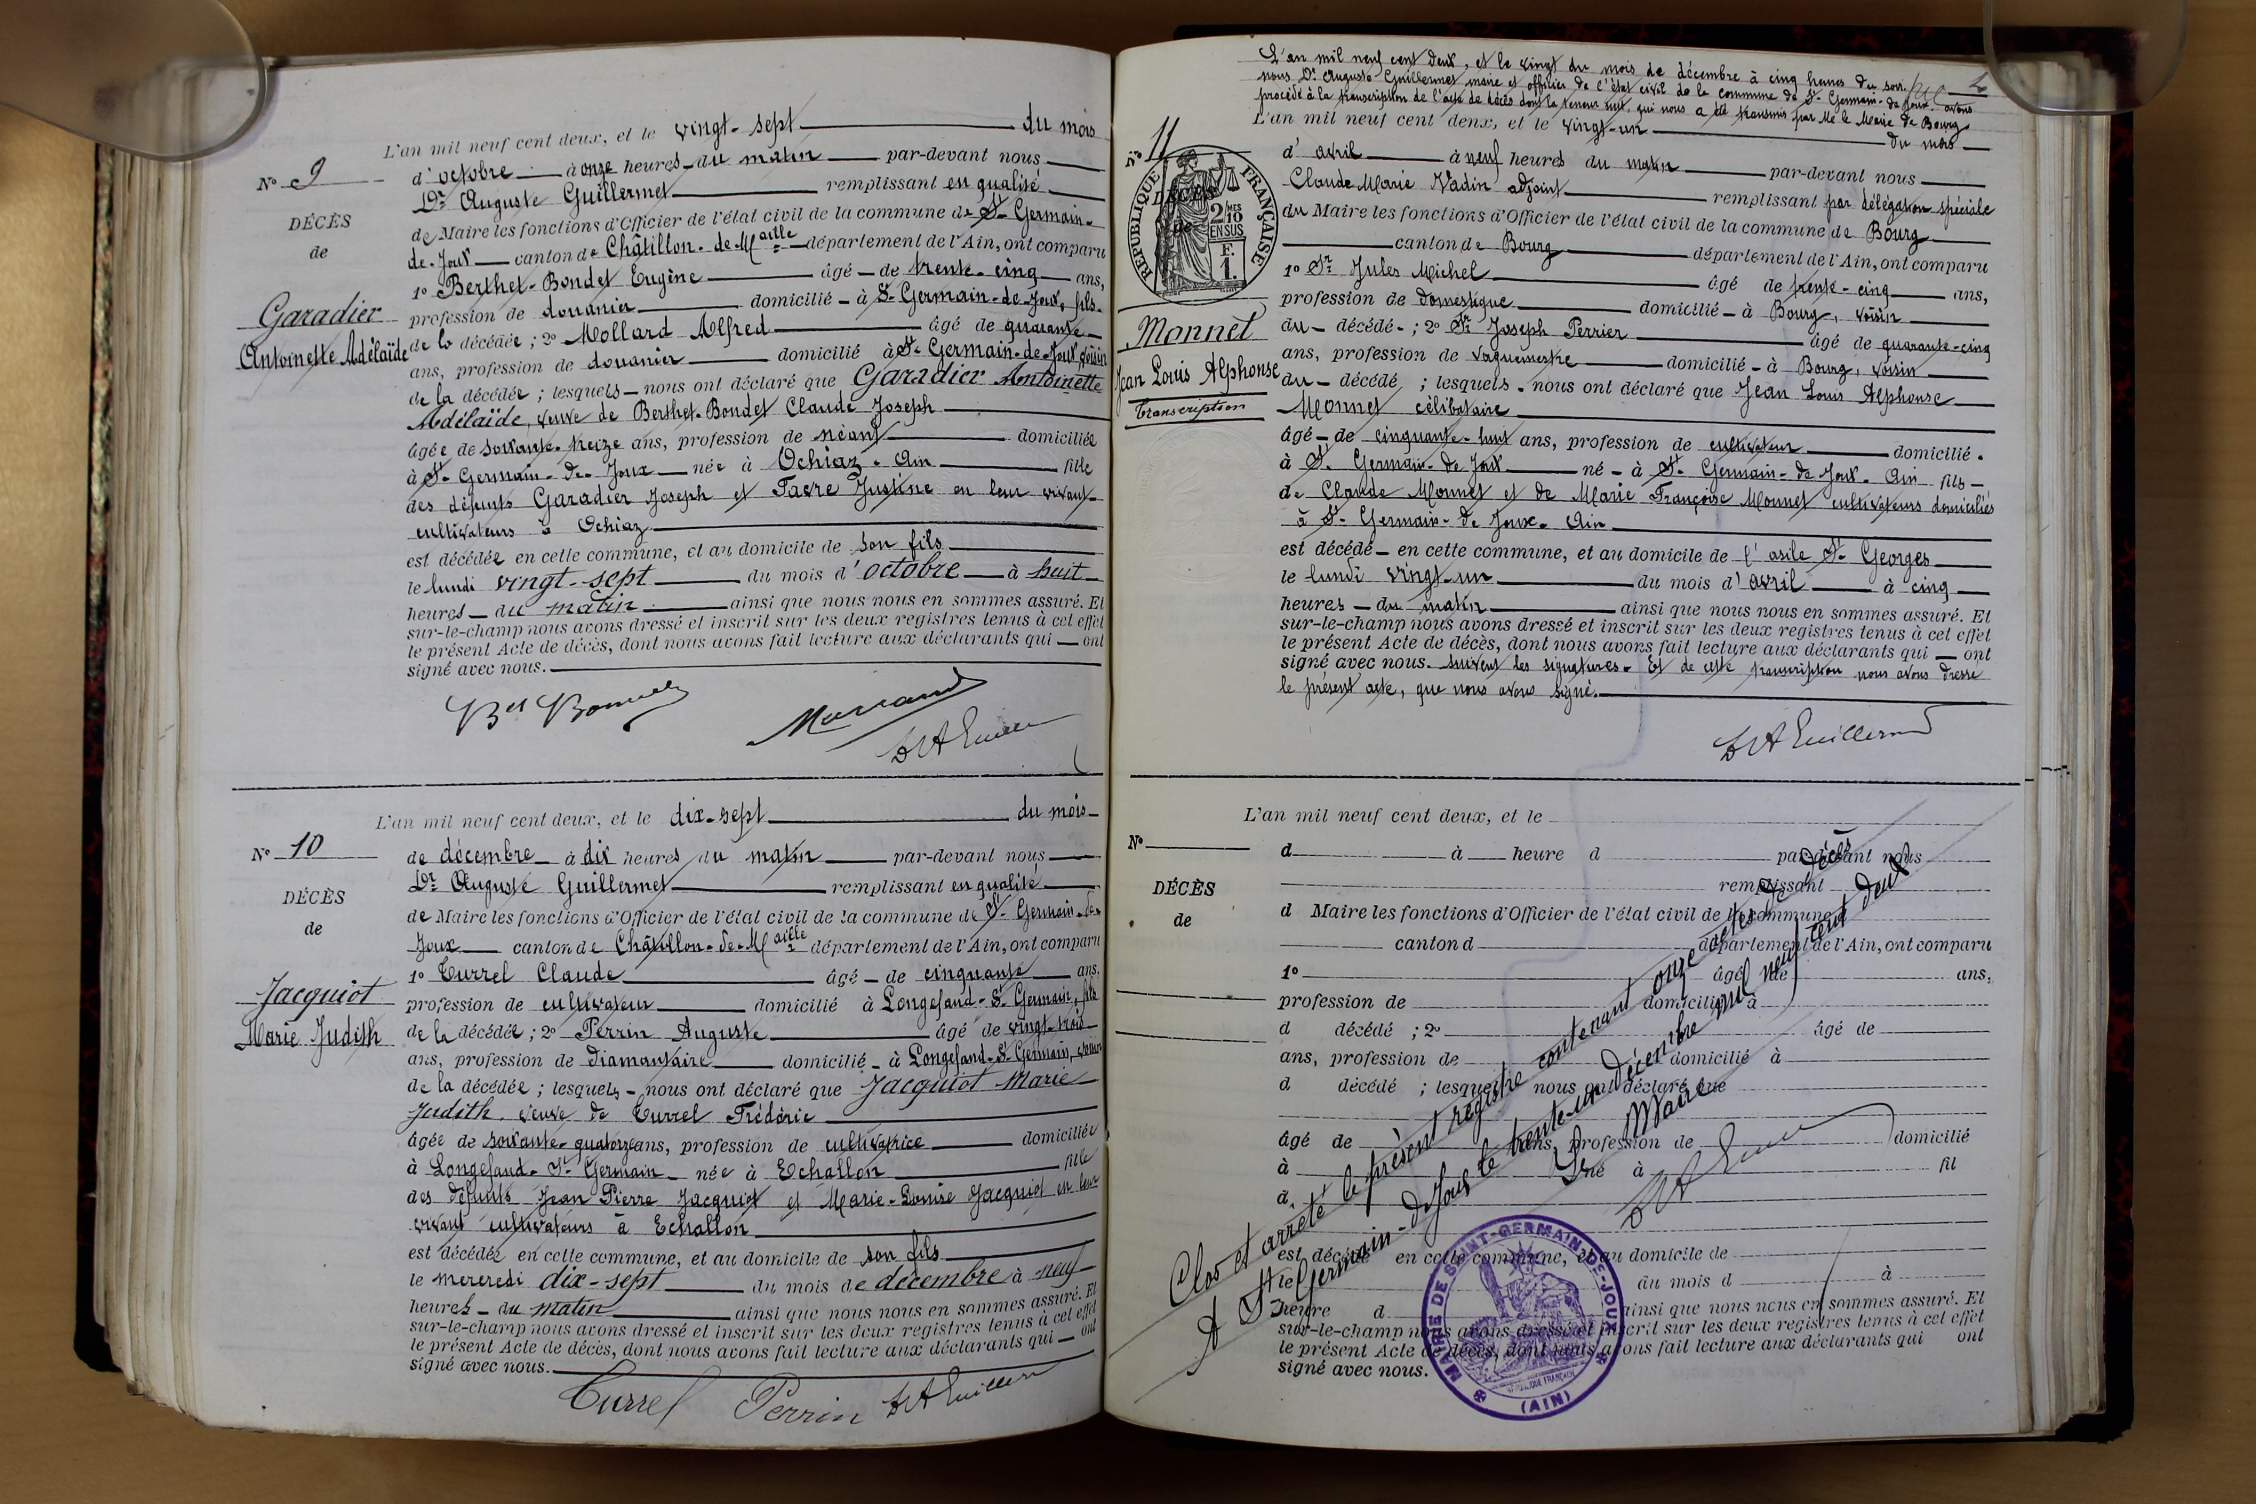 L'an mil neuf cent deux, et le vingt-sept du mois
N° 9
d'octobre à onze heures du matin par-devant nous
Dr Auguste Guillermet remplissant en qualité
DÉCÈS
de Maire les fonctions d'Officier de l'état civil de la commune de St Germain-
de
de-Joux canton de Châtillon-de-Maille département de l'Ain, ont comparu
1° Berthet-Bondet Eugène âgé de trente-cinq ans,
Garadier
profession de douanier domicilié à St Germain-de-Joux, fils
Antoinette Adélaïde
de la décédée ; 2° Mollard Alfred âgé de quarante
ans, profession de douanier domicilié à St Germain-de-Joux, voisin
de la décédée ; lesquels nous ont déclaré que Garadier Antoinette
Adélaïde, veuve de Berthet-Bondet Claude Joseph
âgée de soixante-treize ans, profession de néant domiciliée
à St Germain-de-Joux née à Ochiaz-Ain fille
des défunts Garadier Joseph et Favre Justine en leur vivant
cultivateurs à Ochiaz
est décédée en cette commune, et au domicile de son fils
le lundi vingt-sept du mois d'octobre à huit
heures du matin ainsi que nous nous en sommes assuré. Et
sur-le-champ nous avons dressé et inscrit sur les deux registres tenus à cet effet
le présent Acte de décès, dont nous avons fait lecture aux déclarants qui ont
signé avec nous.
L'an mil neuf cent deux, et le dix-sept du mois
N° 10
de décembre à dix heures du matin par-devant nous
Dr Auguste Guillermet remplissant en qualité
DÉCÈS
de Maire les fonctions d'Officier de l'état civil de la commune de St Germain-de-
de
Joux canton de Châtillon-de-Maille département de l'Ain, ont comparu
1° Turrel Claude âgé de cinquante ans,
Jacquiot
profession de cultivateur domicilié à Longefand-St Germain, fils
Marie Judith
de la décédée ; 2° Perrin Auguste âgé de vingt-trois
ans, profession de diamantaire domicilié à Longefand-St Germain, voisin
de la décédée ; lesquels nous ont déclaré que Jacquiot Marie
Judith, veuve de Turrel Frédéric
âgée de soixante-quatorze ans, profession de cultivatrice domiciliée
à Longefand-St Germain née à Echallon fille
des défunts Jean Pierre Jacquiot et Marie-Louise Jacquiot en leur
vivant cultivateurs à Echallon
est décédée en cette commune, et au domicile de son fils
le mercredi dix-sept du mois de décembre à neuf
heures du matin ainsi que nous nous en sommes assuré. Et
sur-le-champ nous avons dressé et inscrit sur les deux registres tenus à cet effet
le présent Acte de décès, dont nous avons fait lecture aux déclarants qui ont
signé avec nous.
Turrel Perrin Dr A Guillerm
L'an mil neuf cent deux, et le vingt du mois de décembre à cinq heures du soir
nous Dr Auguste Guillermet maire et officier de l'état civil de la commune de St Germain-de-Joux avons
procédé à la transcription de l'acte de décès dont la teneur suit, qui nous a été transmis par Mr le Maire de Bourg
L'an mil neuf cent deux, et le vingt-un du mois
N° 11
d'avril à neuf heures du matin par-devant nous
Claude Marie Vadin adjoint remplissant par délégation spéciale
DÉCÈS
du Maire les fonctions d'Officier de l'état civil de la commune de Bourg
de
RÉPUBLIQUE FRANÇAISE
2/10 MES EN SUS
F. 1.
canton de Bourg département de l'Ain, ont comparu
1° Sr Jules Michel âgé de trente-cinq ans,
profession de domestique domicilié à Bourg, voisin
Monnet
du décédé ; 2° Sr Joseph Perrier âgé de quarante-cinq
Jean Louis Alphonse
ans, profession de vaguemestre domicilié à Bourg, voisin
Transcription
du décédé ; lesquels nous ont déclaré que Jean Louis Alphonse
Monnet célibataire
âgé de cinquante-huit ans, profession de cultivateur domicilié
à St Germain-de Joux né à St Germain-de-Joux-Ain fils
de Claude Monnet et de Marie Françoise Monnet cultivateurs domiciliés
à St Germain-de Joux-Ain
est décédé en cette commune, et au domicile de l'asile St Georges
le lundi vingt-un du mois d'avril à cinq
heures du matin ainsi que nous nous en sommes assuré. Et
sur-le-champ nous avons dressé et inscrit sur les deux registres tenus à cet effet
le présent Acte de décès, dont nous avons fait lecture aux déclarants qui ont
signé avec nous. suivent les signatures. Et de cette transcription nous avons dressé
le présent acte, que nous avons signé.
Dr A Guillermet
L'an mil neuf cent deux, et le
N°
d à heure d par-devant nous
DÉCÈS
remplissant
de
d Maire les fonctions d'Officier de l'état civil de la commune d
canton d département de l'Ain, ont comparu
1° âgé de ans,
profession de domicilié à
d décédé ; 2° âgé de
ans, profession de domicilié à
d décédé ; lesquels nous ont déclaré que
âgé de ans, profession de domicilié
à né à fil
d
est décédé en cette commune, et au domicile de
le du mois d à
heure d ainsi que nous nous en sommes assuré. Et
sur-le-champ nous avons dressé et inscrit sur les deux registres tenus à cet effet
le présent Acte de décès, dont nous avons fait lecture aux déclarants qui ont
signé avec nous.
Clos et arrêté le présent registre contenant onze actes de décès
A St Germain-de Joux le trente-un décembre mil neuf cent deux
Le Maire
MAIRIE DE SAINT-GERMAIN-DE-JOUX
RÉPUBLIQUE FRANÇAISE
(AIN)